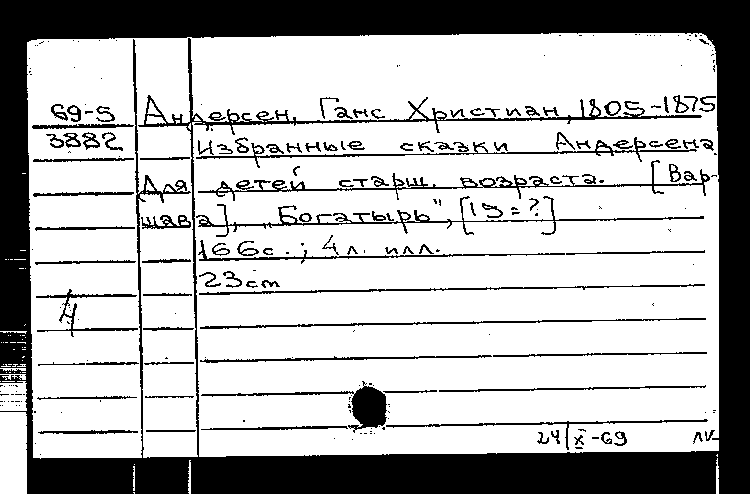 69-5 Андерсен, Ганс Христиан, 1805-1875
3882 Избранные сказки Андерсена
Для детей старш. возраста. [Вар-
шава], „Богатырь", [19=?]
166с.; 4л. илл.
23cm
4
24/X-69 ЛК